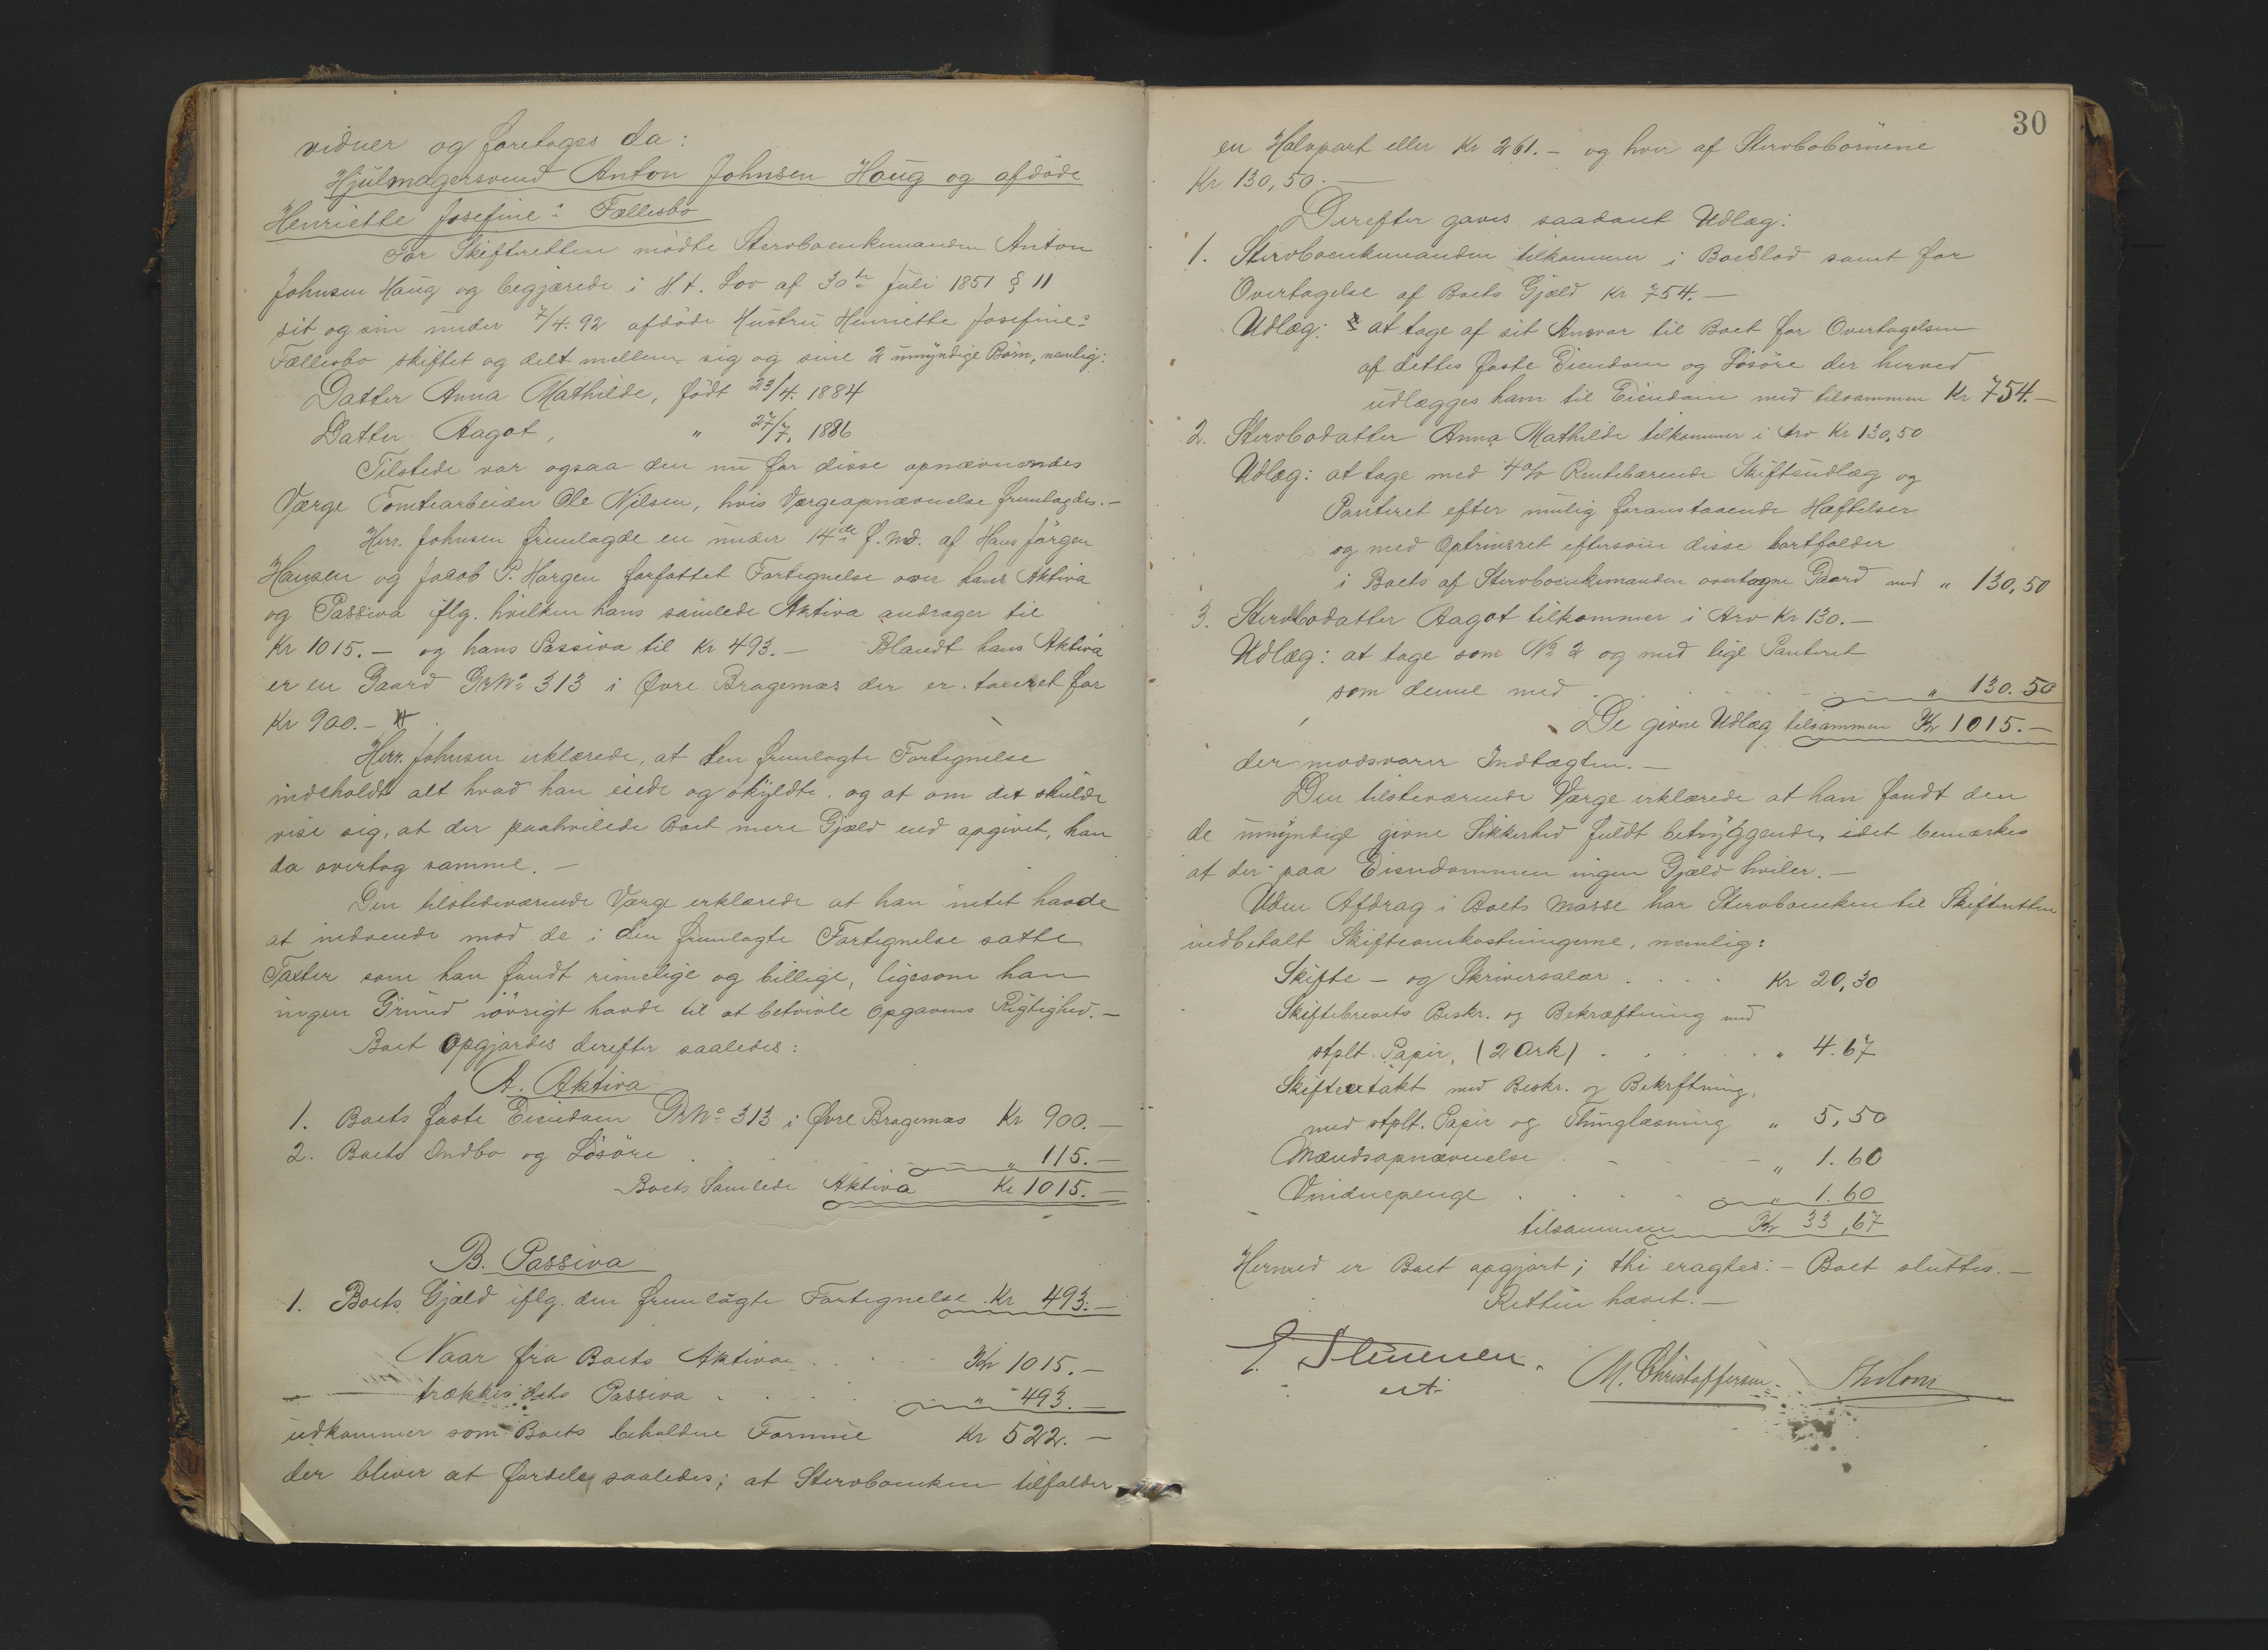 vidner og foretages da:
Hjulmagersvend Anton Johnsen Haug og afdøde
Henriette Josefines Fællesbo
For Skifteretten mødte Stervboenkemanden Anton
Johnsen Haug og begjærede i H. t. Lov af 30te Juli 1851 § 11
sit og sin under 7/4. 92 afdøde Hustru Henriette Josefines
Fællesbo skiftet og delt mellem sig og sine 2 umyndige Børn, nemlig:
Datter Anna Mathilde, født 23/4. 1884
Datter Aagot, " 27/7. 1886
Tilstede var ogsaa den nu for disse opnævnendes
Værge Tomtearbeider Ole Nilsen, hvis Værgeopnævnelse fremlagdes.-
Herr. Johnsen fremlagde en under 14de f. md. af Hans Jørgen
Hansen og Jacob P. Horgen forfattet Fortegnelse over hans Aktiva
og Passiva iflg. hvilken hans samlede Aktiva andrager til
Kr 1015.- og hans Passiva til Kr 493.- Blandt hans Aktiva
er en Gaard GrNo 313 i Øvre Bragernæs der er taxeret for
Kr 900.-
Herr. Johnsen erklærede, at den fremlagte Fortegnelse
indeholdt alt hvad han eiede og skyldte, og at om det skulde
vise sig, at der paahvilede Boet mere Gjæld end opgivet, han
da overtog samme.-
Den tilstedeværende Værge erklærede at han intet havde
at indvende mod de i den fremlagte Fortegnelse satte
Taxter som han fandt rimelige og billige, ligesom han
ingen Grund iøvrigt havde til at betvivle Opgavens Rigtighed.-
Boet Opgjordes derefter saaledes:
A. Aktiva
1. Boets faste Eiendom GrNo 313 i Øvre Bragernæs Kr 900.-
2. Boets Indbo og Løsøre " 115.-
Boets Samlede Aktiva Kr 1015.-
B. Passiva
1. Boets Gjæld iflg. den fremlagte Fortegnelse Kr 493.-
Naar fra Boets Aktiva Kr 1015.-
trækkes dets Passiva " 493.-
udkommer som Boets beholdne Formue Kr 522.-
der bliver at fordele saaledes; at Stervboenken tilfalder
30
en Halvpart eller Kr 261.- og hver af Stervbobørnene
Kr 130,50.-
Derefter gaves saadant Udlæg:
1. Stervboenkemanden tilkommer i Boeslod samt for
Overtagelse af Boets Gjæld Kr 754.-
Udlæg: at tage af sit Ansvar til Boet for Overtagelsen
af dettes faste Eiendom og Løsøre der herved
udlægges ham til Eiendom med tilsammen Kr 754.-
2. Stervbodatter Anna Mathilde tilkommer i Arv Kr 130,50
Udlæg: at tage med 4% Rentebærende Skifteudlæg og
Panteret efter mulig foranstaaende Hæftelser
og med Optrinsret eftersom disse bortfalder
i Boets af Stervboenkemanden overtagne Gaard med " 130,50
3. Stervbodatter Aagot tilkommer i Arv Kr 130.-
Udlæg: at tage som No 2 og med lige Panteret
som denne med " 130.50
De givne Udlæg tilsammen Kr 1015.-
der modsvarer Indtægten.-
Den tilstedeværende Værge erklærede at han fandt den
de umyndige givne Sikkerhed fuldt betryggende, idet bemærkes
at der paa Eiendommen ingen Gjæld hviler.-
Uden Afdrag i Boets Masse har Stervboenken til Skifteretten
indbetalt Skifteomkostningerne, nemlig:
Skifte - og Skriversalær Kr 20,30
Skiftebrevets Beskr. og Bekræftning med
stplt. Papir, (2 Ark) " 4.67
Skifteextakt med Beskr. og Bekrftning,
med stplt. Papir og Thinglæsning " 5,50
Mændsopnævnelse " 1.60
Vidnepenge " 1.60
tilsammen Kr 33,67
Hermed er Boet opgjort; thi eragtes: - Boet sluttes.-
Retten hævet.-
M. Christoffersen